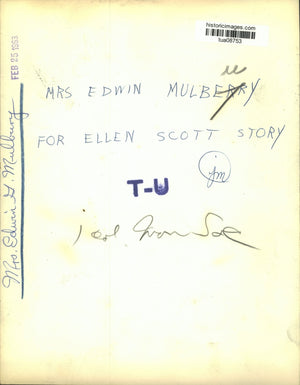 historicimages.com
tua08753
FEB 25 1963
MRS EDWIN MULBERRY
FOR ELLEN SCOTT STORY
jm
T-U
1 col.
Mrs. Edwin G. Mulbury